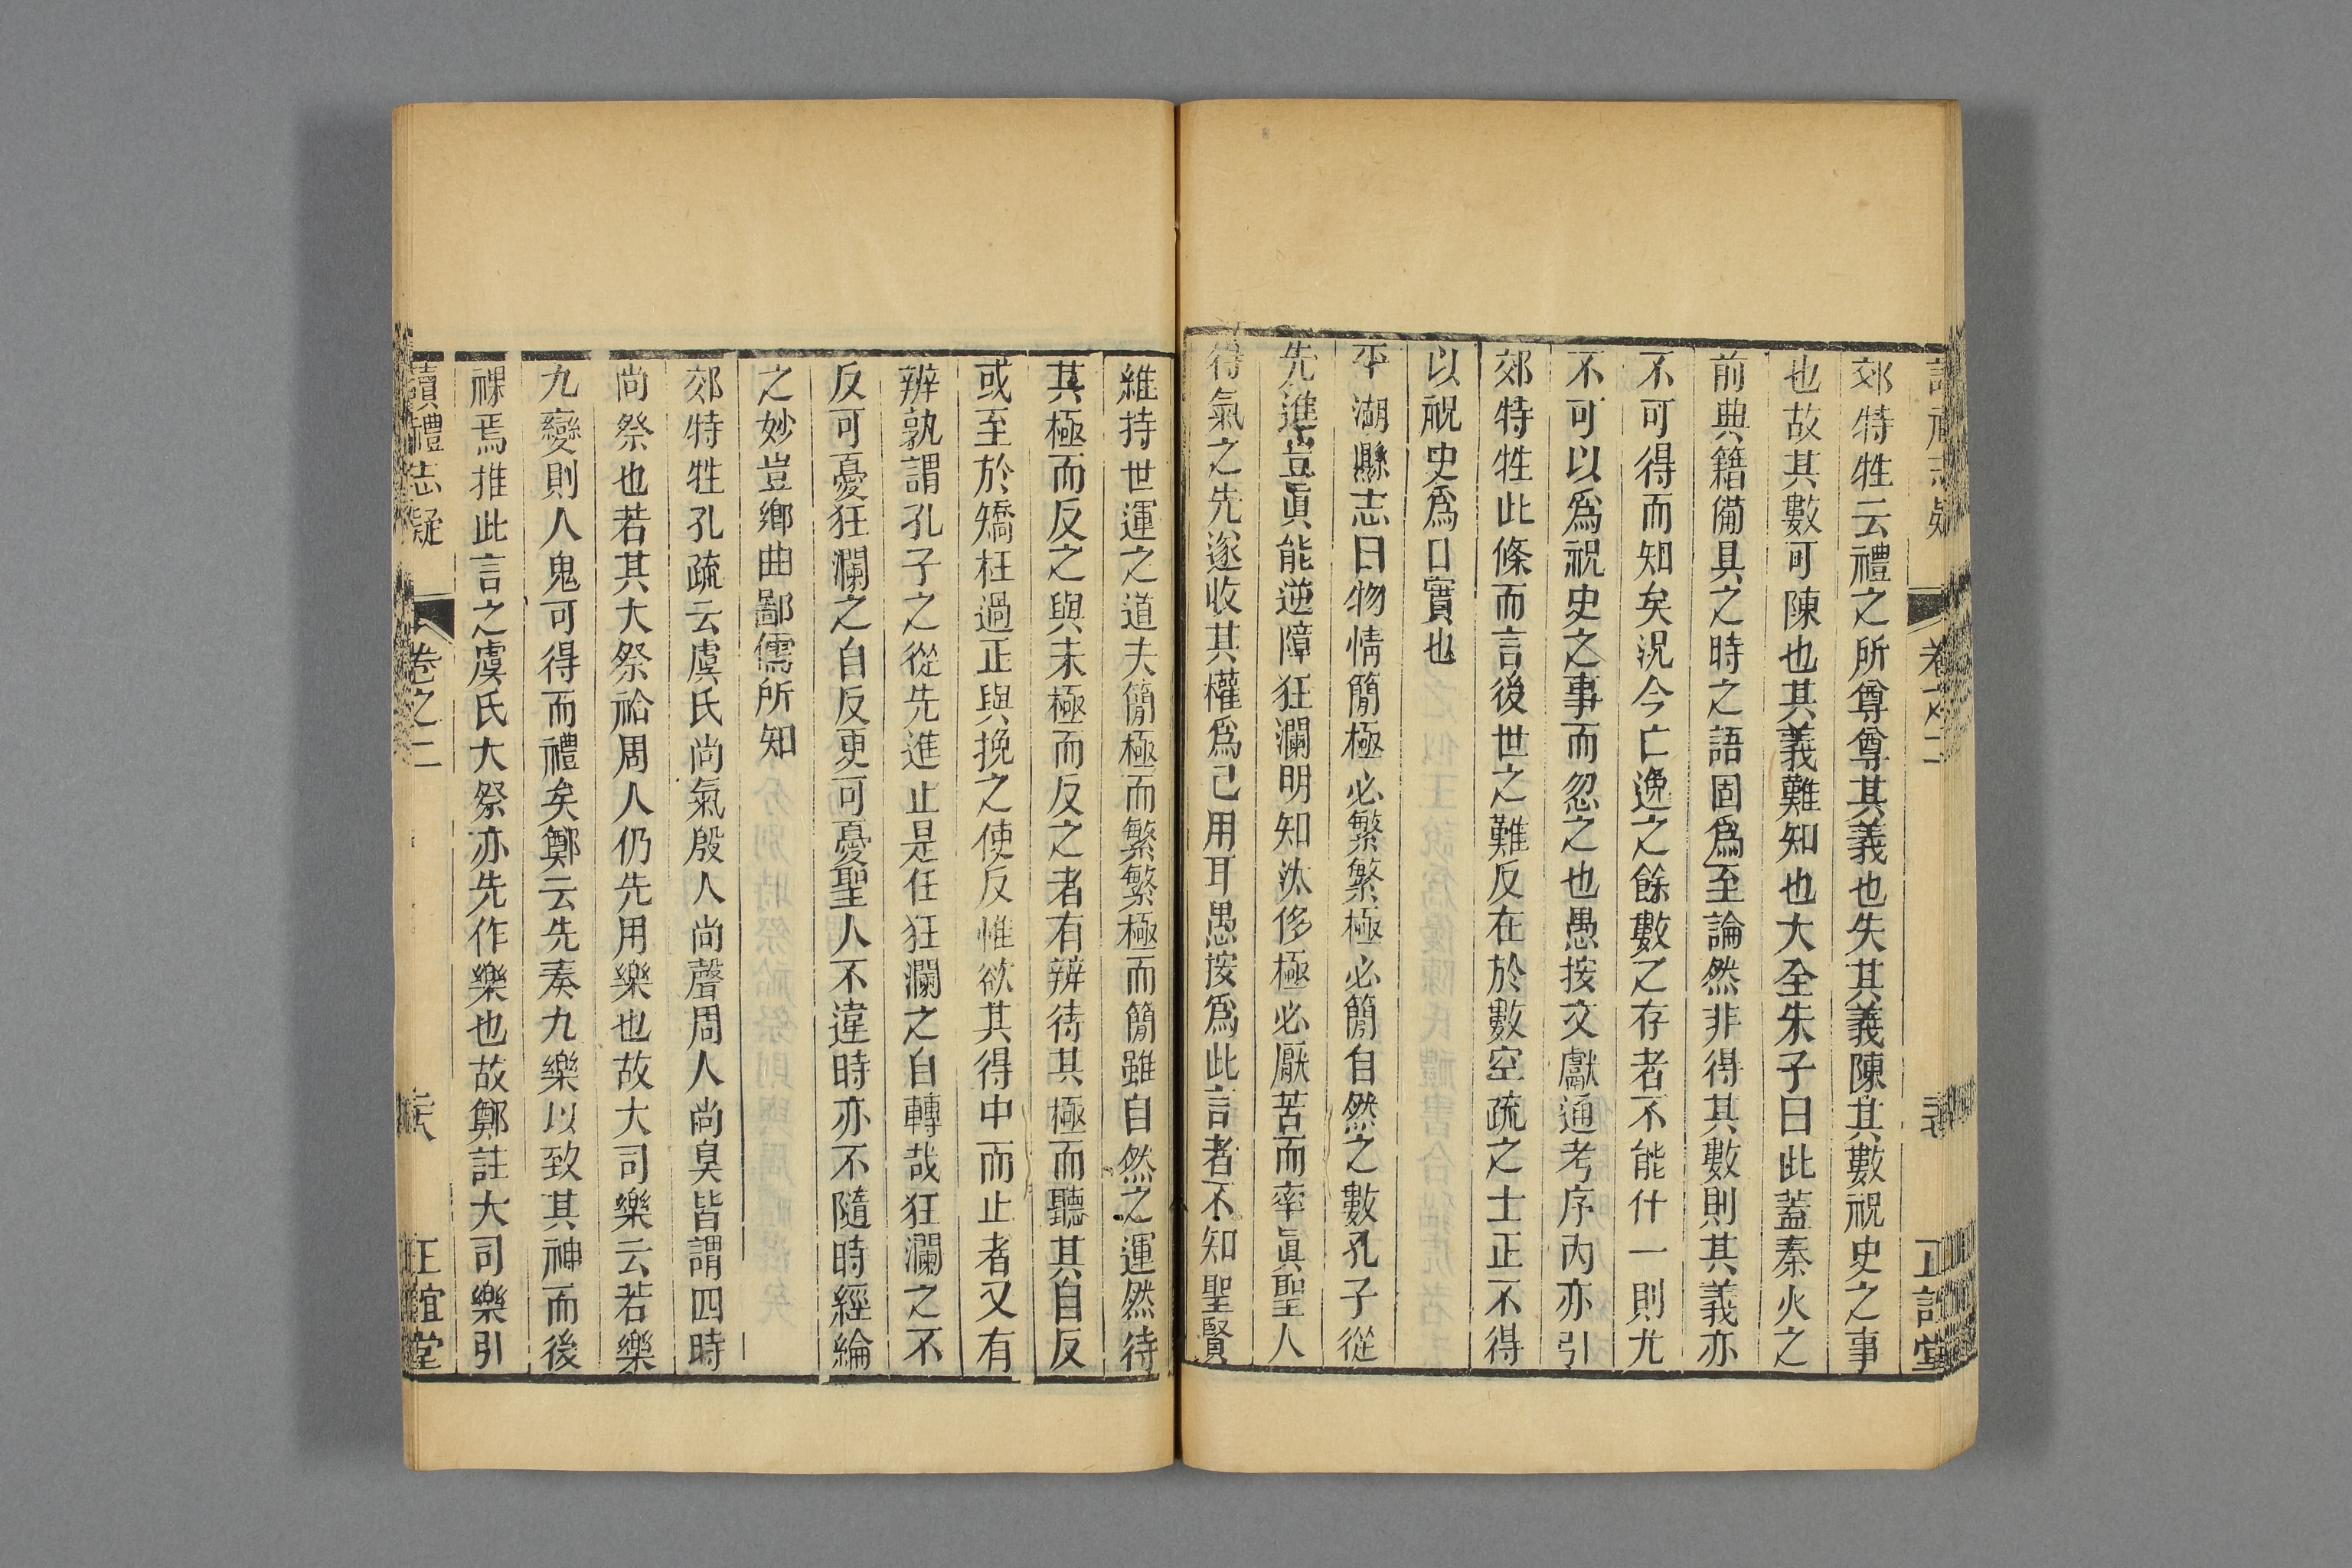 郊特牲云禮之所尊尊其義也失其義陳其數祝史之事
也故其數可陳也其義難知也大全朱子曰此蓋秦火之
前典籍備具之時之語固爲至論然非得其數則其義亦
不可得而知矣況今亡逸之餘數之存者不能什一則尤
不可以爲祝史之事而忽之也愚按文獻通考序內亦引
郊特牲此條而言後世之難反在於數空疏之士正不得
以祝史爲口實也
平湖縣志曰物情簡極必繁繁極必簡自然之數孔子從
先進豈眞能逆障狂瀾明知汰侈極必厭苦而率眞聖人
得氣之先遂收其權爲己用耳愚按爲此言者不知聖賢
維持世運之道夫簡極而繁繁極而簡雖自然之運然待
其極而反之與未極而反之者有辨待其極而聽其自反
或至於矯枉過正與挽之使反惟欲其得中而止者又有
辨孰謂孔子之從先進止是任狂瀾之自轉哉狂瀾之不
反可憂狂瀾之自反更可憂聖人不違時亦不隨時經綸
之妙豈鄉曲鄙儒所知
郊特牲孔疏云虞氏尚氣殷人尚聲周人尚臭皆謂四時
尚祭也若其大祭祫周人仍先用樂也故大司樂云若樂
九變則人鬼可得而禮矣鄭云先奏九樂以致其神而後
祼焉推此言之虞氏大祭亦先作樂也故鄭註大司樂引
讀禮志疑 卷之二 正誼堂